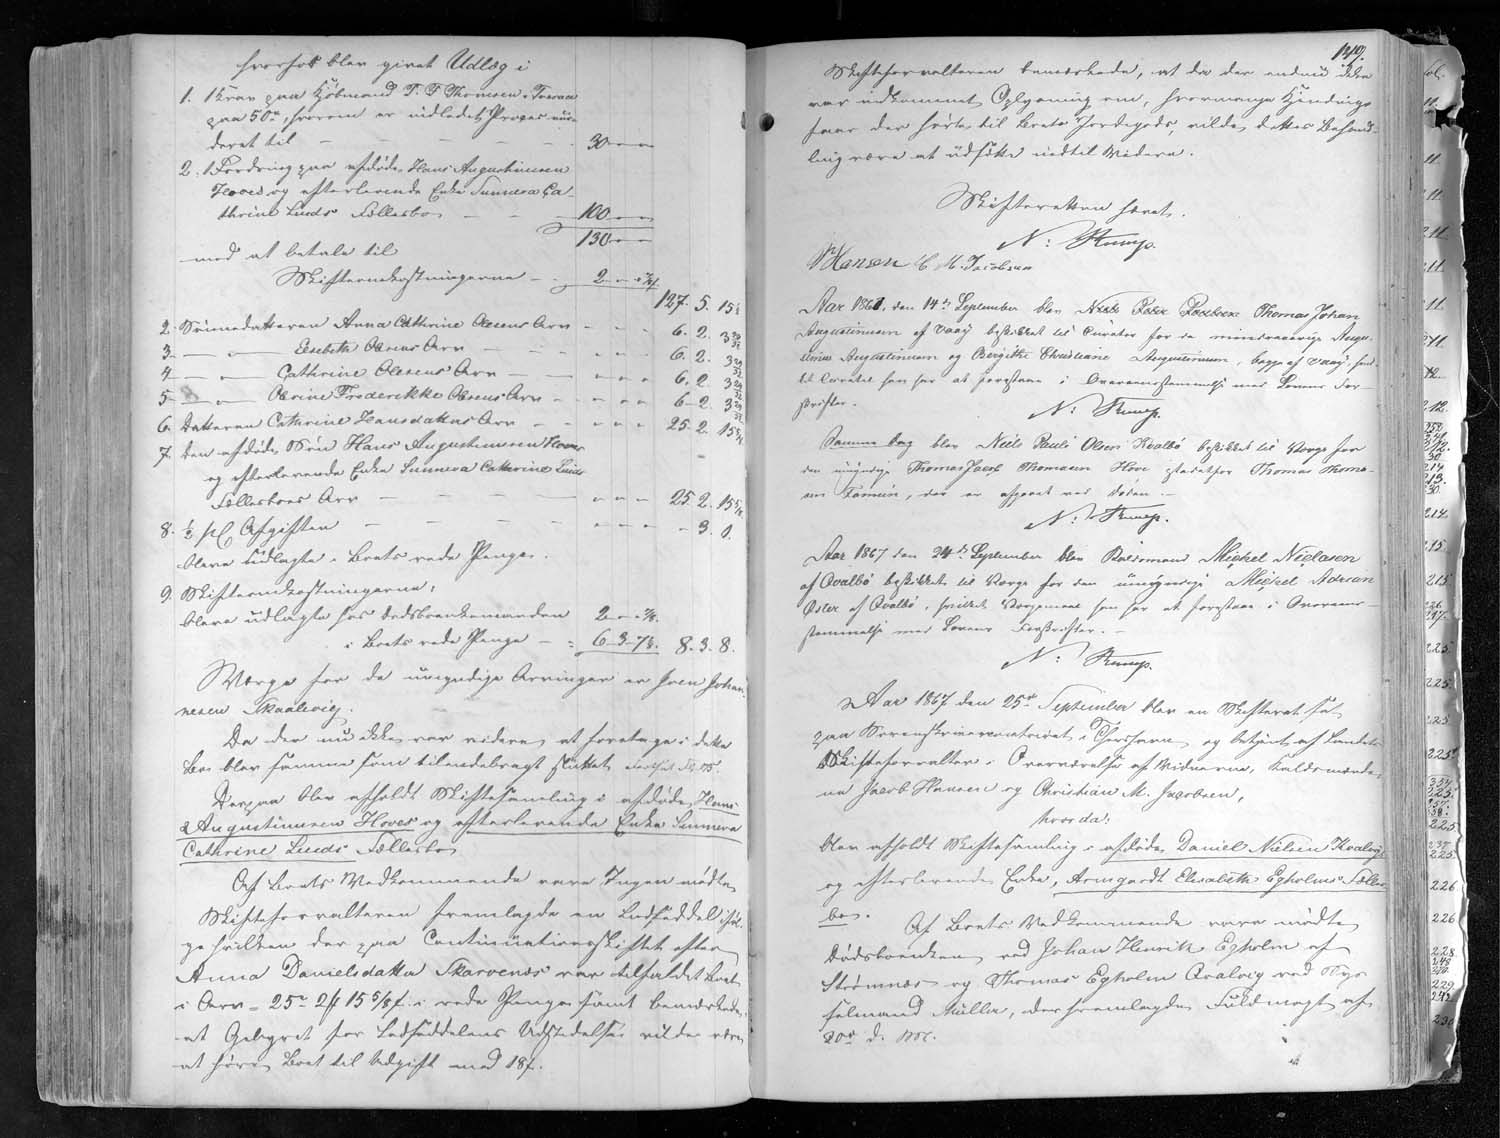 hvorfor blev givet Udlæg i
1. 1 Krav paa Kjöbmand P. F. Thomsen i Tveraa
paa 50 rd, hvorom er indledet Proces vur-
deret til 30
2. 1 Fordring paa afdöde Hans Augustinussen
Hoves og efterlevende Enke Sunneva Ca-
thrine Lunds Fællesbo 100
130
mod at betale til
Skifteomkostningerne 2
127. 5. 15
2. Sönnedatteren Anna Cathrine Olesens Arv 6. 2. 3
3. Elsebeth Olesens Arv 6. 2. 3
4 Cathrine Olesens Arv 6. 2 3
5 Olevine Frederikke Olesens Arv 6-2. 3
6. Datteren Cathrine Hansdatters Arv 25. 2. 15
7. Den afdöde Sön Hans Augustinussen Hoves
og efterlevende Enke Sunneva Cathrine Lunds
Fællesboes Arv 25. 2. 15
8. ½ pCt Afgiften - 3. 0.
bleve udlagte i Boets rede Penge.
9. Skifteomkostningerne:
bleve udlagte hos Dödsboenkemanden 2
i Boets rede Penge 6-3-7 8. 3. 8.
Værge for de umyndige Arvinger er Joen Johan-
nesen Skaalevig.
Da der nu ikke var videre at foretage i dette
Bo blev samme som tilendebragt sluttet
Derpaa blev afholdt Skiftesamling i afdöde Hans
Augustinussen Hoves og efterlevende Enke Sunneva
Cathrine Lunds Fællesbo
Af Boets Vedkommende vare Ingen mödte
Skifteforvalteren fremlagde en Lodseddel iföl-
ge hvilken der paa Continuationsskiftet efter
Anna Danielsdatter Skarvenæs var tilfaldet Boet
i Arv 25 rd 2 15 5/8 i rede Penge samt bemærkede,
at Gebyret for Lodseddelens Udstedelse vilde være
at före Boet til Udgift med 18 s.
149.
Skifteforvalteren bemærkede, at da der endnu ikke
var indkommet Oplysning om, hvormange Hændings-
faar der hörte til Boets Jordegods, vilde dettes Behand-
ling være at udsætte indtil Videre.
Skifteretten hævet.
N: Krup.
Hansen C M. Jacobsen
Aar 1867, den 14de September blev Niels Peter Poulsen Thomas Johan
Augustinussen af Vaag beskikket til Curator for de mindreaarige Augu-
stinus Augustinussen og Bergithe Christiane Augustinussen, begge af Vaag, hvil-
ket Curatel han har at forestaae i Overeensstemmelse med Lovens For-
skrifter.
N: Krup.
Samme Dag blev Niels Pauli Olsen Qvalbö beskikket til Værge for
den umyndige Thomas Jacob Thomsen Hove istedetfor Thomas Thom-
sen Famien, der er afgaaet ved Döden.
N: Krup.
Aar 1867 den 24de September blev Kaldsmand Michel Nielsen
af Qvalbö beskikket til Værge for den umyndige Michel Adrian
af Qvalbö, hvilket Værgemaal han har at forestaae i Overeens-
stemmelse med Lovens Forskrifter.
N: Krup.
Aar 1867 den 25de September blev en Skifteret sat
paa Sorenskrivercontoiret i Thorshavn og betjent af Landets
Skifteforvalter i Overværelse af Vidnerne, Kaldsmænde-
ne Jacob Hansen og Christian M. Jacobsen,
hvorda:
blev afholdt Skiftesamling i afdöde Daniel Nielsen Kvalvigs
og efterlevende Enke, Armgardt Elisabeth Egholms Fælles-
bo.
Af Boets Vedkommende vare mödte
Dödsboenken ved Johan Henrik Egholm af
Strömnæs og Thomas Egholm Qvalvig ved Sys-
selmand Müller, der fremlagde Fuldmagt af
20de d. M.